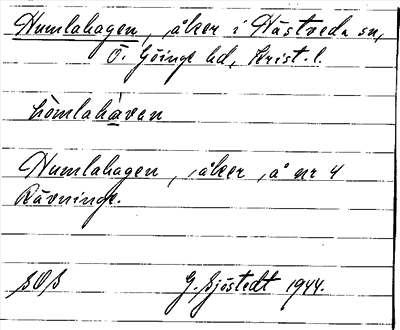 Humlahagen, åker i Hästveda sn,
Ö. Göinge hd, Krist. l.
hòmlahàvan
Humlahagen, åker, å nr 4
Rävninge.
SOS G. Sjöstedt 1944.